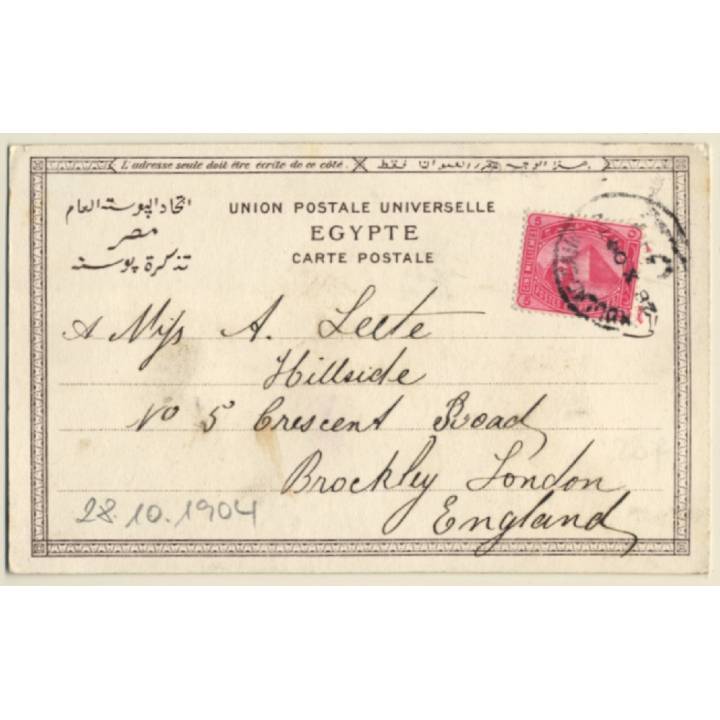 L'adresse seule doit être écrite de ce côté. هذا الوجه مقرر للعنوان فقط
اتحاد البوسته العام
مصر
تذكرة بوسته
UNION POSTALE UNIVERSELLE
EGYPTE
CARTE POSTALE
A Miss A. Leete
Hillside
No 5 Crescent Road
Brockley London
England
28.10.1904
5 5
5